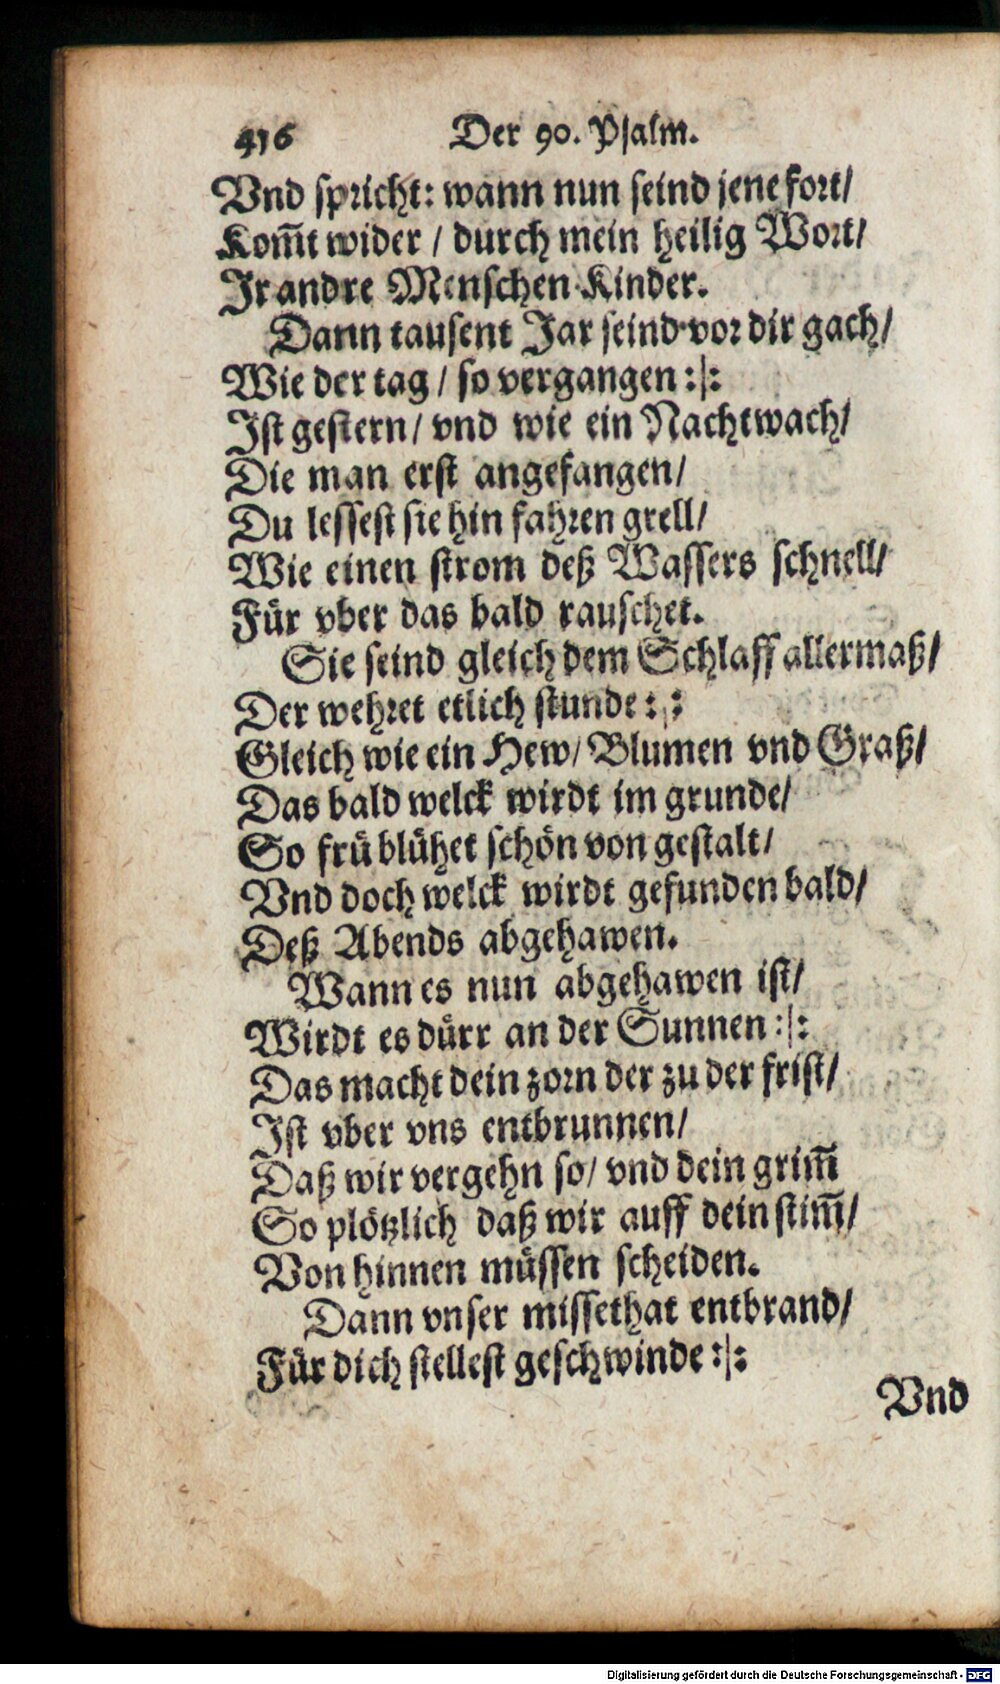 416 Der 90. Psalm.
Vnd spricht: wann nun seind jene fort/
Kom̄t wider / durch mein heilig Wort/
Ir andre Menschen Kinder.
Dann tausent Jar seind vor dir gach/
Wie der tag / so vergangen :|:
Ist gestern/ vnd wie ein Nachtwach/
Die man erst angefangen/
Du lessest sie hin fahren grell/
Wie einen strom deß Wassers schnell/
Für vber das bald rauschet.
Sie seind gleich dem Schlaff allermaß/
Der wehret etlich stunde :|:
Gleich wie ein Hew/ Blumen vnd Graß/
Das bald welck wirdt im grunde/
So frü blühet schön von gestalt/
Vnd doch welck wirdt gefunden bald/
Deß Abends abgehawen.
Wann es nun abgehawen ist/
Wirdt es dürr an der Sunnen :|:
Das macht dein zorn der zu der frist/
Ist vber vns entbrunnen/
Daß wir vergehn so/ vnd dein grim̄
So plötzlich daß wir auff dein stim̄/
Von hinnen müssen scheiden.
Dann vnser missethat entbrand/
Für dich stellest geschwinde :|:
Vnd
Digitalisierung gefördert durch die Deutsche Forschungsgemeinschaft - DFG